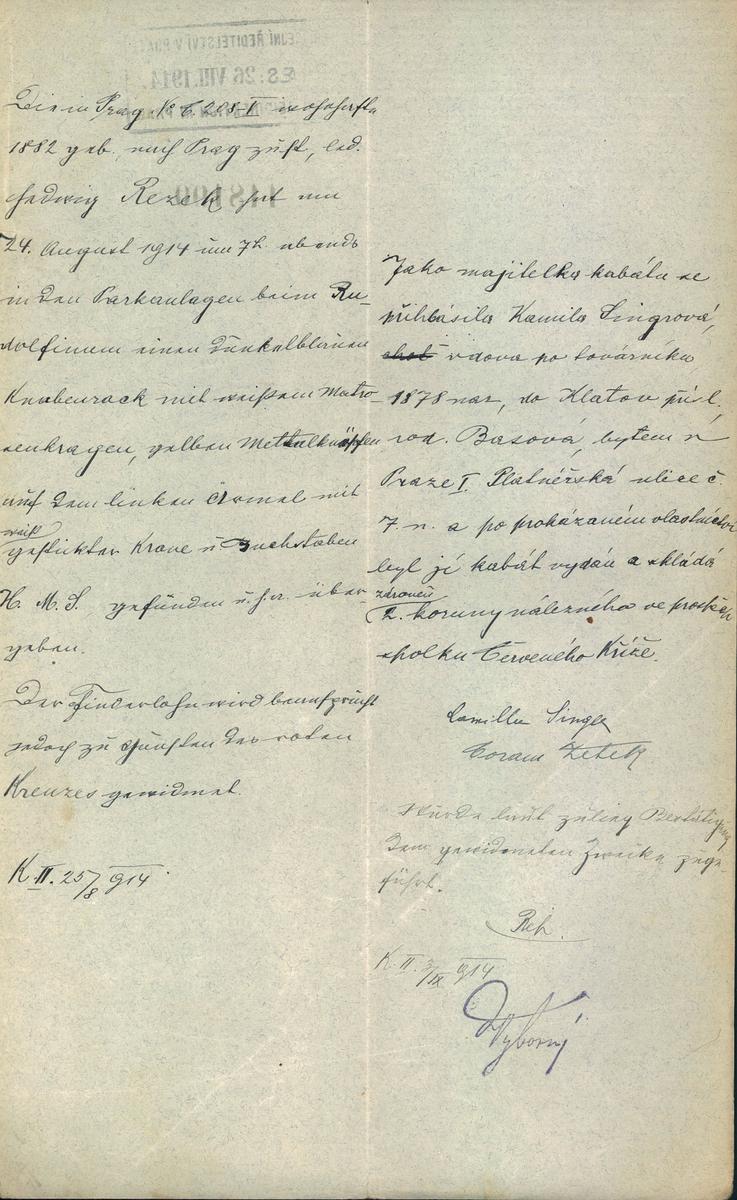 Die in Prag No C. 208-I wohnhafte
1882 geb., nach Prag zust., led.
Hedwig Rezek hat am
24. August 1914 um 7h abends
in den Parkanlagen beim Ru-
dolfinum einen dunkelblauen
Knabenrock mit weißem Matro-
senkragen, gelben Mettalknöpfen
auf dem linken Ärmel mit
weiß
gestickter Krone u Buchstaben
H. M. S. gefunden u. h.a. über-
geben.
Der Finderlohn wird beansprucht
jedoch zu Gunsten des roten
Kreuzes gewidmet.
K. II. 25/8 1914.
Jako majitelka kabátu se
přihlásila Kamila Singrová,
choť vdova po továrníku
1878 nar., do Klatov přísl.
roz. Basová, bytem v
Praze I. Platnéřská ulice č.
7. n. a po prokázaném vlastnictví
byl jí kabát vydán a skládá
zároveň
2. koruny nálezného ve prospěch
spolku Červeného Kříže.
Camilla Singer
Coram Zetek
Wurde laut zulieg Bestätigung
dem gewidmeten Zwecke zuge-
führt.
K. II. 3/IX 1914
Výborný